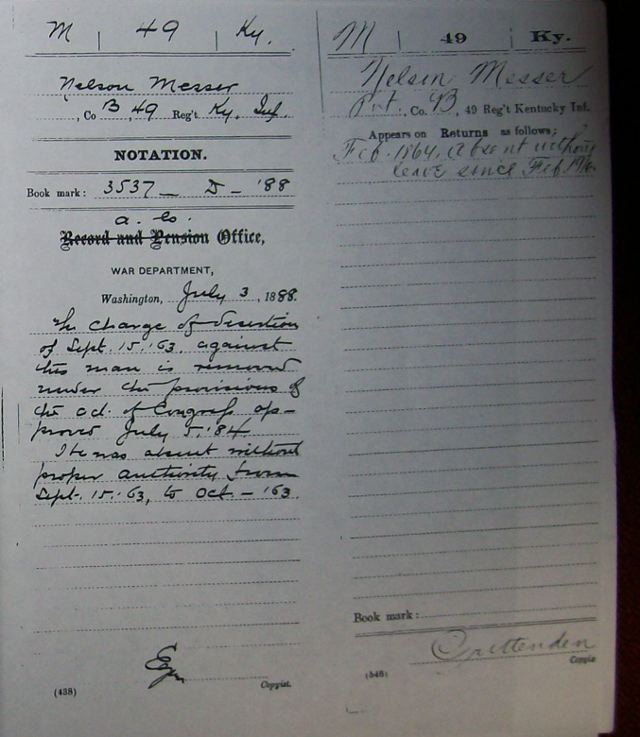 M | 49 | Ky.
Nelson Messer
, Co B, 49 Reg't Ky. Inf.
NOTATION.
Book mark: 3537 - D - '88
A. G.
Record and Pension Office,
WAR DEPARTMENT,
Washington, July 3, 1888.
The charge of desertion
of Sept. 15, '63, against
this man is removed
under the provisions of
the act of Congress ap-
proved July 5, '84.
He was absent without
proper authority from
Sept. 15, '63, to Oct. - '63.
Copyist.
(438)
M | 49 | Ky.
Nelson Messer
Pvt., Co. B, 49 Reg't Kentucky Inf.
Appears on Returns as follows:
Feb. 1864, Absent without
leave since Feb.
Book mark:
Crittenden
Copyist
(546)